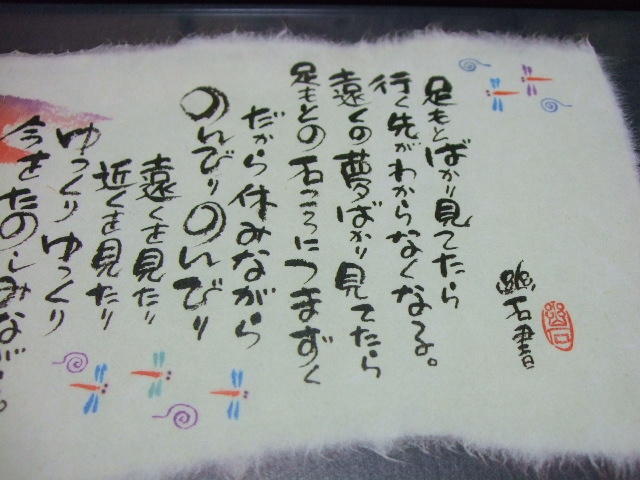 足もとばかり見てたら
行く先がわからなくなる。
遠くの夢ばかり見てたら
足もとの石ころにつまずく
だから休みながら
のんびりのんびり
遠くを見たり
近くを見たり
ゆっくりゆっくり
今をたのしみなが
石書